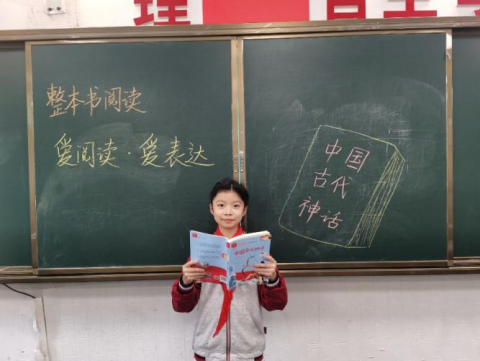 整本书阅读
爱阅读·爱表达
中国
古代
神话